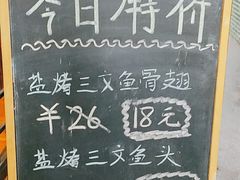 今日特价
盐烤三文鱼骨翅
￥26 18元
盐烤三文鱼头